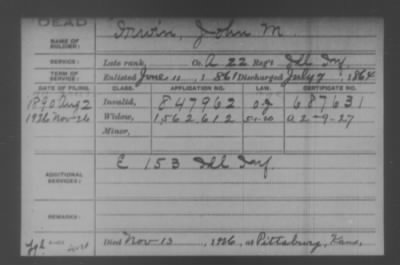 DEAD
NAME OF SOLDIER: Irwin, John M.
SERVICE: Late rank, Co. A 22 Reg't Ill Inf.
TERM OF SERVICE: Enlisted June 11, 1861 Discharged July 7, 1864
DATE OF FILING. CLASS. APPLICATION NO. LAW. CERTIFICATE NO.
1890 Aug 2 Invalid, 847962 687631
1926 Nov-26 Widow, 1,562,612 a 2-9-27
Minor,
ADDITIONAL SERVICES: E 153 Ill Inf.
REMARKS:
Died Nov-13, 1926, at Pittsburg, Kans,